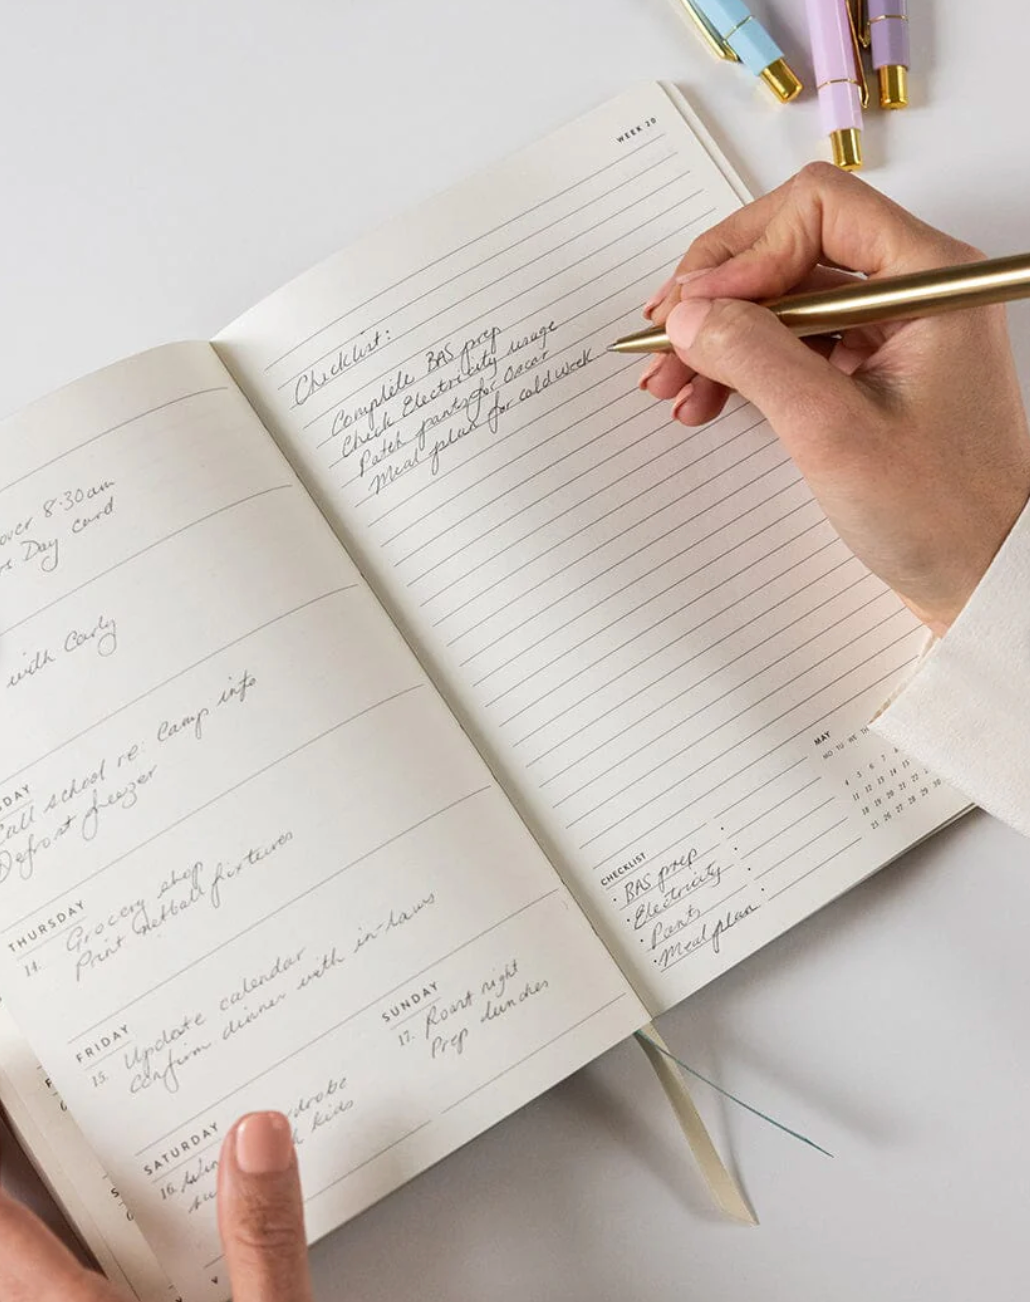 over 8.30am
Day card
with Carly
DAY
Call school re: Camp info
Defrost freezer
THURSDAY
14.
Grocery shop
Print Netball fixtures
FRIDAY
15.
Update calendar
Confirm dinner with in-laws
SATURDAY
16.
kids
SUNDAY
17.
Roast night
Prep lunches
WEEK 20
Checklist:
Complete BAS prep
Check Electricity usage
Patch pants for Oscar
Meal plan for cold week
CHECKLIST
· BAS prep
· Electricity
· Pants
· Meal plan
MAY
MO TU WE TH
4 5 6 7 8
11 12 13 14 15
18 19 20 21 22
25 26 27 28 29 30